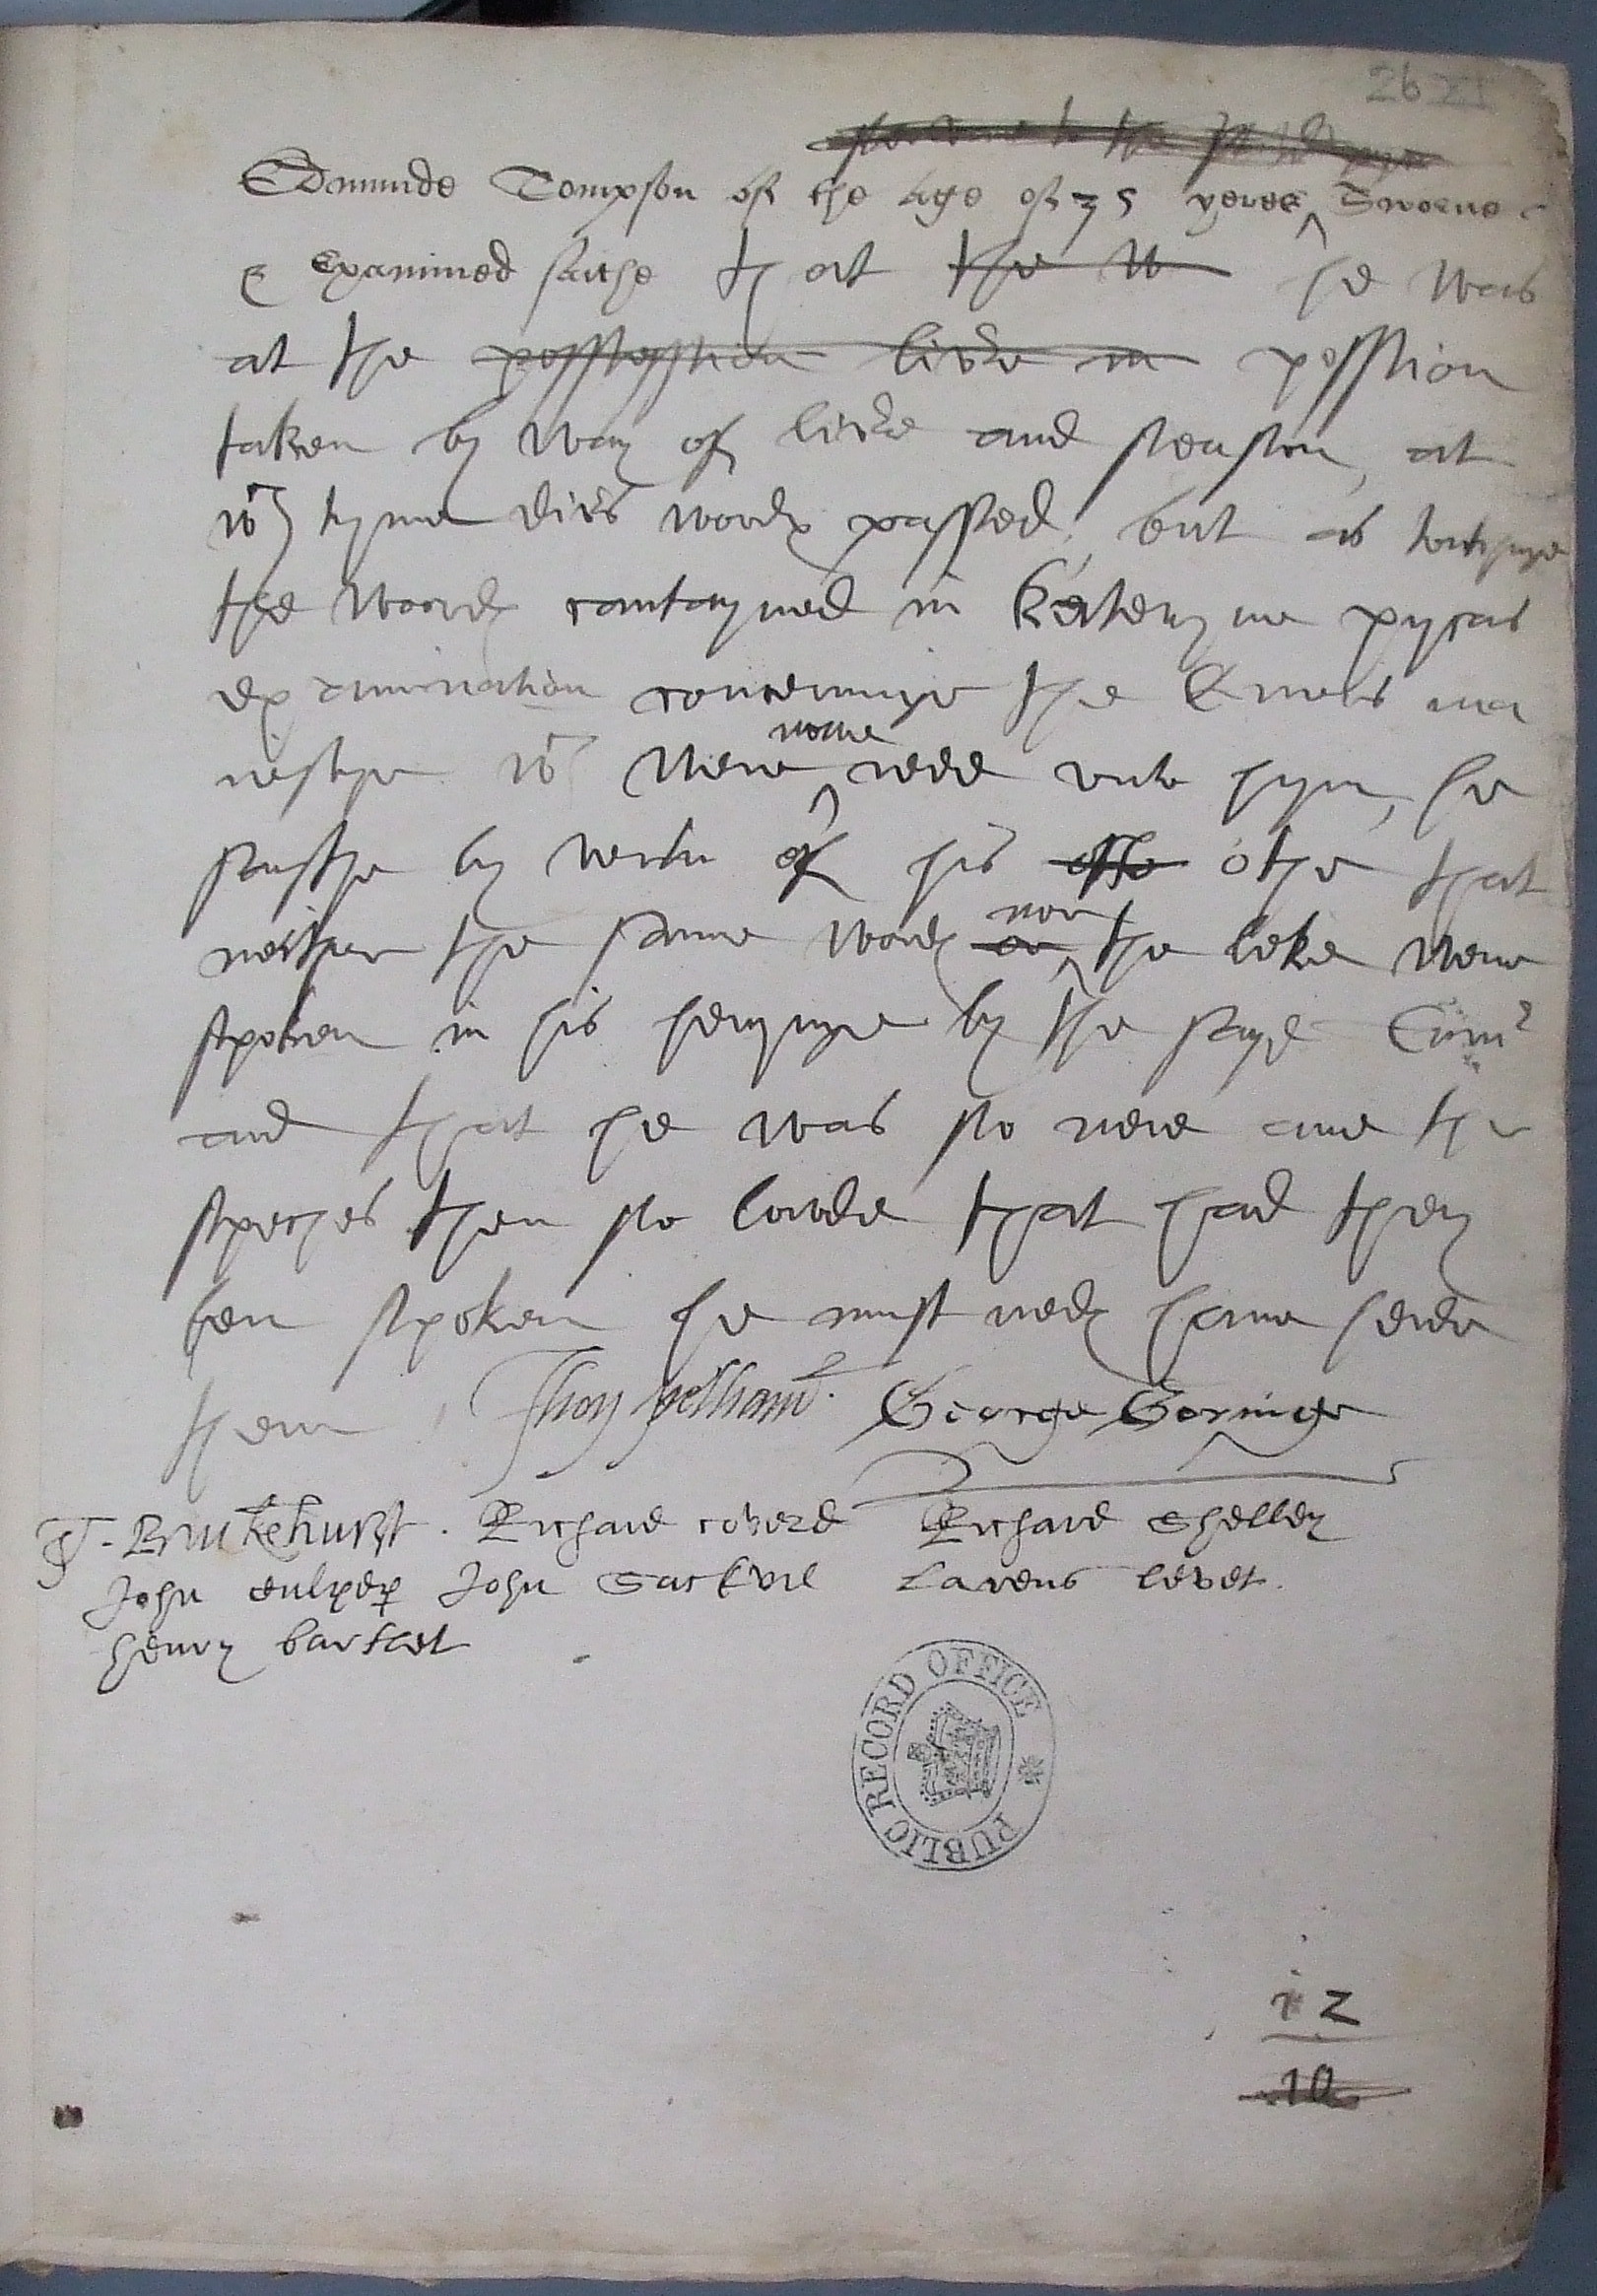 26 XI
Edmunde Tompson of the age of 35 yeres ^ Sworne
& Examined saithe that the w he was
at the possession livre in possion
taken by way of livre and seasin, at
wch tyme divs words passed, but as touchinge
the words contayned in Kateryne pycas
examination concerninge the Quenes ma
jestye wch were ^ nowe redd unto hym, he
saythe by vertu of his othe that
neither the same words or ^ nor the like were
spoken in his heryinge by the sayd
and that he was so nere and the
speches then so lowde that had they
ben spoken he must neds have herde
them, Thos pelham. George Goringe
T. Bruckehurst. Richard coverd Richard Shelley
John culpep John Sackvil Larens levet.
henry bartlet
PUBLIC RECORD OFFICE
12
10